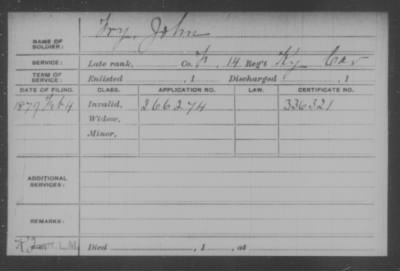 NAME OF SOLDIER: Fry, John
SERVICE: Late rank, Co. F, 14 Reg't Ky Cav
TERM OF SERVICE: Enlisted , 1 Discharged , 1
DATE OF FILING. CLASS. APPLICATION NO. LAW. CERTIFICATE NO.
1879 Feb 4 Invalid, 266274 336321
Widow,
Minor,
ADDITIONAL SERVICES:
REMARKS:
Died , 1 , at